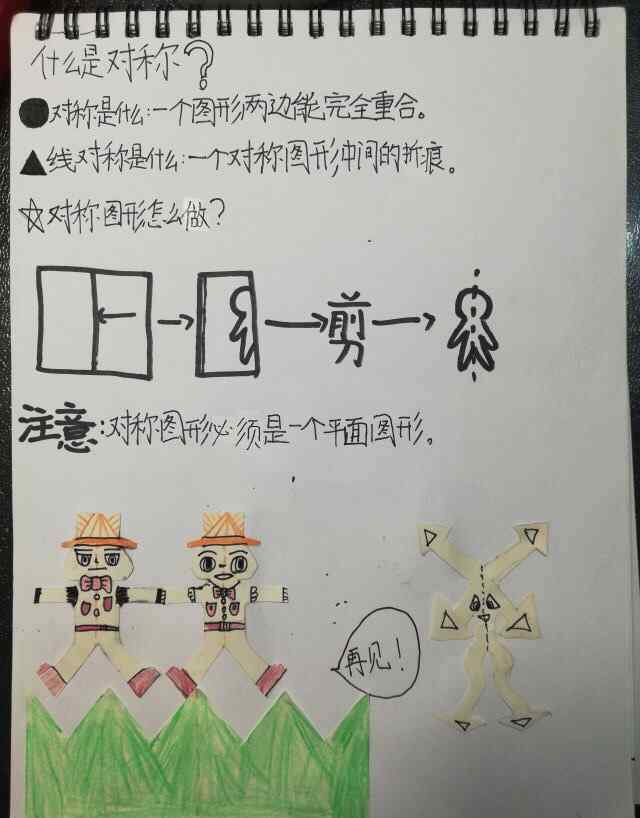 什么是对称?
对称是什么:一个图形两边能完全重合。
线对称是什么:一个对称图形中间的折痕。
对称图形怎么做?
剪
注意:对称图形必须是一个平面图形。
再见!